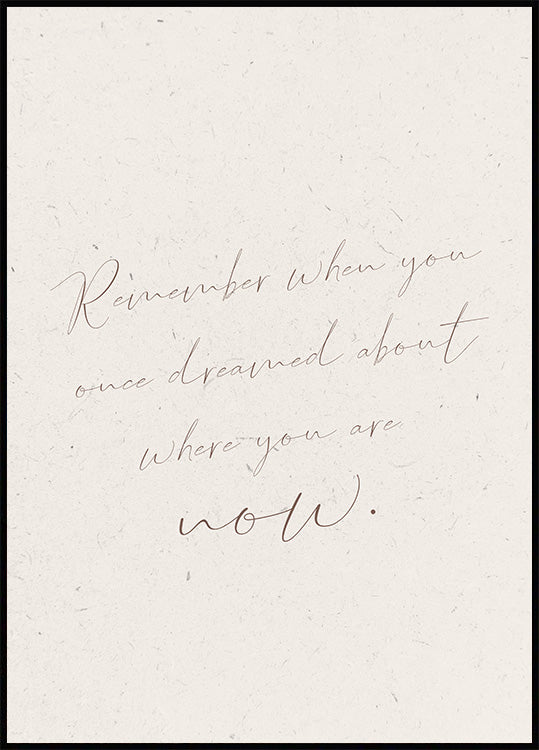 Remember when you
once dreamed about
where you are
now.